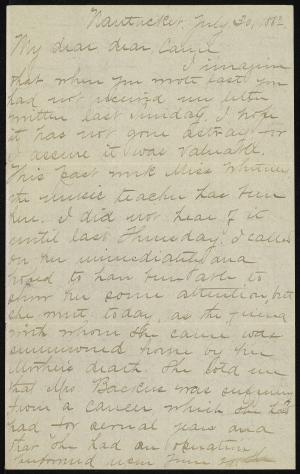 Nantucket, July 30, 1882
My dear dear Carrie
I imagine
that when you wrote last you
had not received my letter
written last Sunday. I hope
it has not gone astray for
I assure it was valuable.
This past week Miss Whitney
the music teacher has been
here. I did not hear of it
until last Thursday. I called
on her immediately and
hoped to have been able to
show her some attention, but
she went today, as the friend
with whom she came was
summoned home by her
Mother's death. She told me
that Mrs. Backus was suffering
from a cancer which she has
had for several years and
that she had an operation
performed upon June